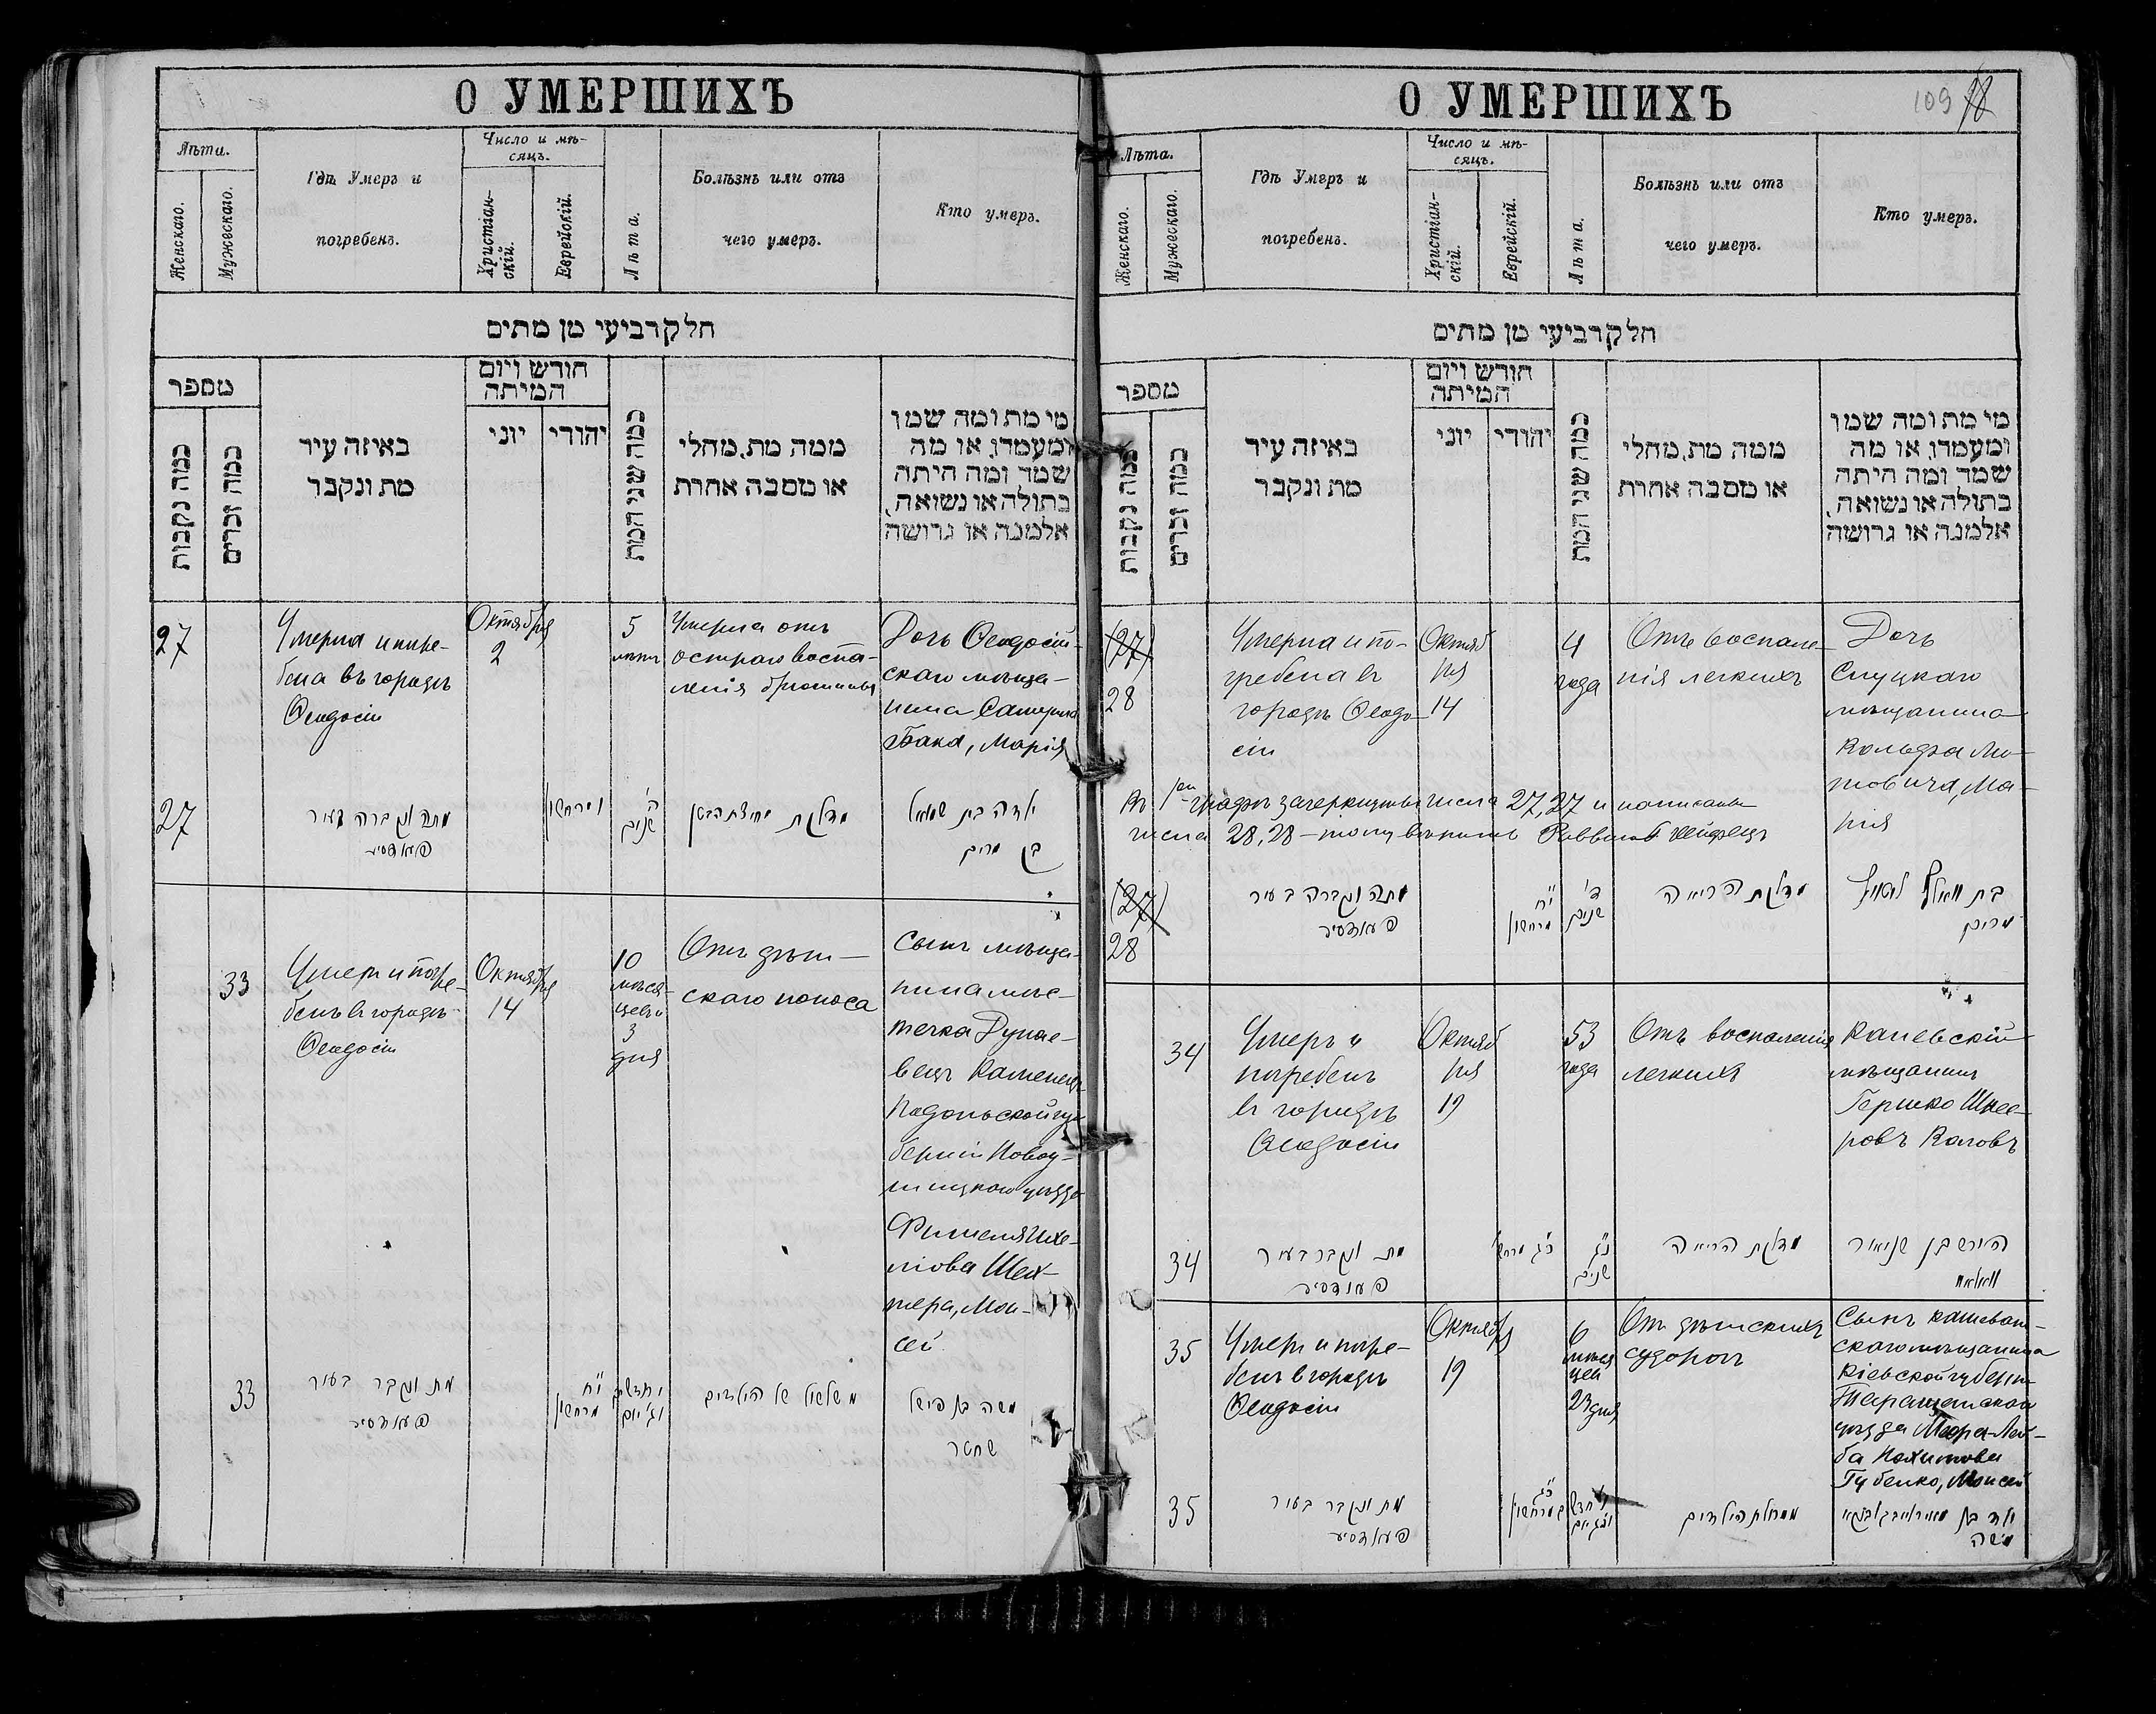 О УМЕРШИХЪ
Лѣта.
Женскаго.
Мужескаго.
Гдѣ Умеръ и
погребенъ.
Число и мѣ-
сяцъ.
Христіан-
скій.
Еврейскій.
Лѣта.
Болѣзнь или отъ
чего умеръ.
Кто умеръ.
חלק רביעי מן מתים
מספר
כמה נקבות
כמה זכרים
באיזה עיר
מת ונקבר
חודש ויום
המיתה
יוני
יהודי
כמה שני המת
ממה מת, מחלי
או מסבה אחרת
מי מת ומה שמו
ומעמדו, או מה
שמד ומה היתה
בתולה או נשואה,
אלמנה או גרושה
27
Умерла и погре-
бена въ городѣ
Ѳеодосіи
Октября
2
5
лѣтъ
Умерла отъ
остраго воспа-
ленія брюшины
Дочь Ѳеодосій-
скаго мѣща-
нина
Бака, Марія
27
מתה ונקברה בעיר
פעאדסיע
ו מרחשון
ה'
שנים
מדלקת
ילדה בת שמואל
בק מרים
33
Умеръ и погре-
бенъ въ городѣ
Ѳеодосіи
Октября
14
10
мѣся-
цевъ и
3
дня
Отъ дѣт-
скаго поноса
Сынъ мѣща-
нина мѣс-
течка Дунае-
вецъ Каменецъ
Подольской гу-
берніи Новоу-
шицкаго уѣзда
Фишеля
Шех-
тера, Мои-
сей
33
מת ונקבר בעיר
פעאדסיע
י"ח
מרחשון
י חדשים
וג' יום
משלשול של הילדים
משה בן פישל
שחטר
О УМЕРШИХЪ
109
Лѣта.
Женскаго.
Мужескаго.
Гдѣ Умеръ и
погребенъ.
Число и мѣ-
сяцъ.
Христіан-
скій.
Еврейскій.
Лѣта.
Болѣзнь или отъ
чего умеръ.
Кто умеръ.
חלק רביעי מן מתים
מספר
כמה נקבות
כמה זכרים
באיזה עיר
מת ונקבר
חודש ויום
המיתה
יוני
יהודי
כמה שני המת
ממה מת, מחלי
או מסבה אחרת
מי מת ומה שמו
ומעמדו, או מה
שמד ומה היתה
בתולה או נשואה,
אלמנה או גרושה
(27)
28
Умерла и по-
гребена въ
городѣ Ѳеодо-
сіи
Октяб
ря
14
4
года
Отъ воспале-
нія легкихъ
Дочь
Слуцкаго
мѣщанина
Вольфа
Ма-
рія
Въ 1ой графѣ зачеркнуты числа 27, 27 и написаны
числа 28, 28 – тому вѣрить Раввинъ
(27)
28
מתה ונקברה בעיר
פעאדסיע
י"ח
מרחשון
ד'
שנים
מדלקת הריאה
בת וואלף
מרים
34
Умеръ и
погребенъ
въ городѣ
Ѳеодосіи
Октяб
ря
19
53
года
Отъ воспаленія
легкихъ
Каневскій
мѣщанинъ
Гершко Шнее-
ровъ Каговъ
34
מת ונקבר בעיר
פעאדסיע
כ"ג מרחש'
נ"ג
שנים
מדלקת הריאה
הירש בן שניאור
35
Умеръ и погре-
бенъ въ городѣ
Ѳеодосіи
Октября
19
6
мѣся
цев
23 дня
Отъ дѣтскихъ
судорогъ
Сынъ
скаго мѣщанина
Кіевской губерн
Таращанскаго
уѣзда Меера-Лей-
ба Нахимова
Губенко, Моисей
35
מת ונקבר בעיר
פעאדסיע
כ"ג
מרחשון
ו חדש
וכ"ג יום
ממחלת הילדים
ילד בן מאיר לייב
משה